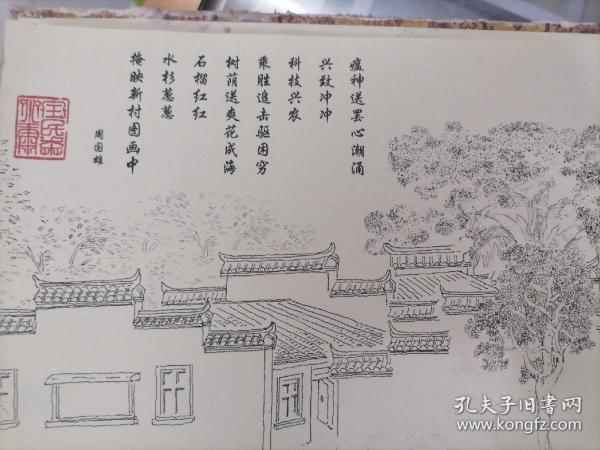 瘟神送罢心潮涌
兴致冲冲
科技兴农
乘胜追击驱困穷
树荫送爽花成海
石榴红红
水杉葱葱
掩映新村图画中
周国雄
孔夫子旧书网
www.kongfz.com